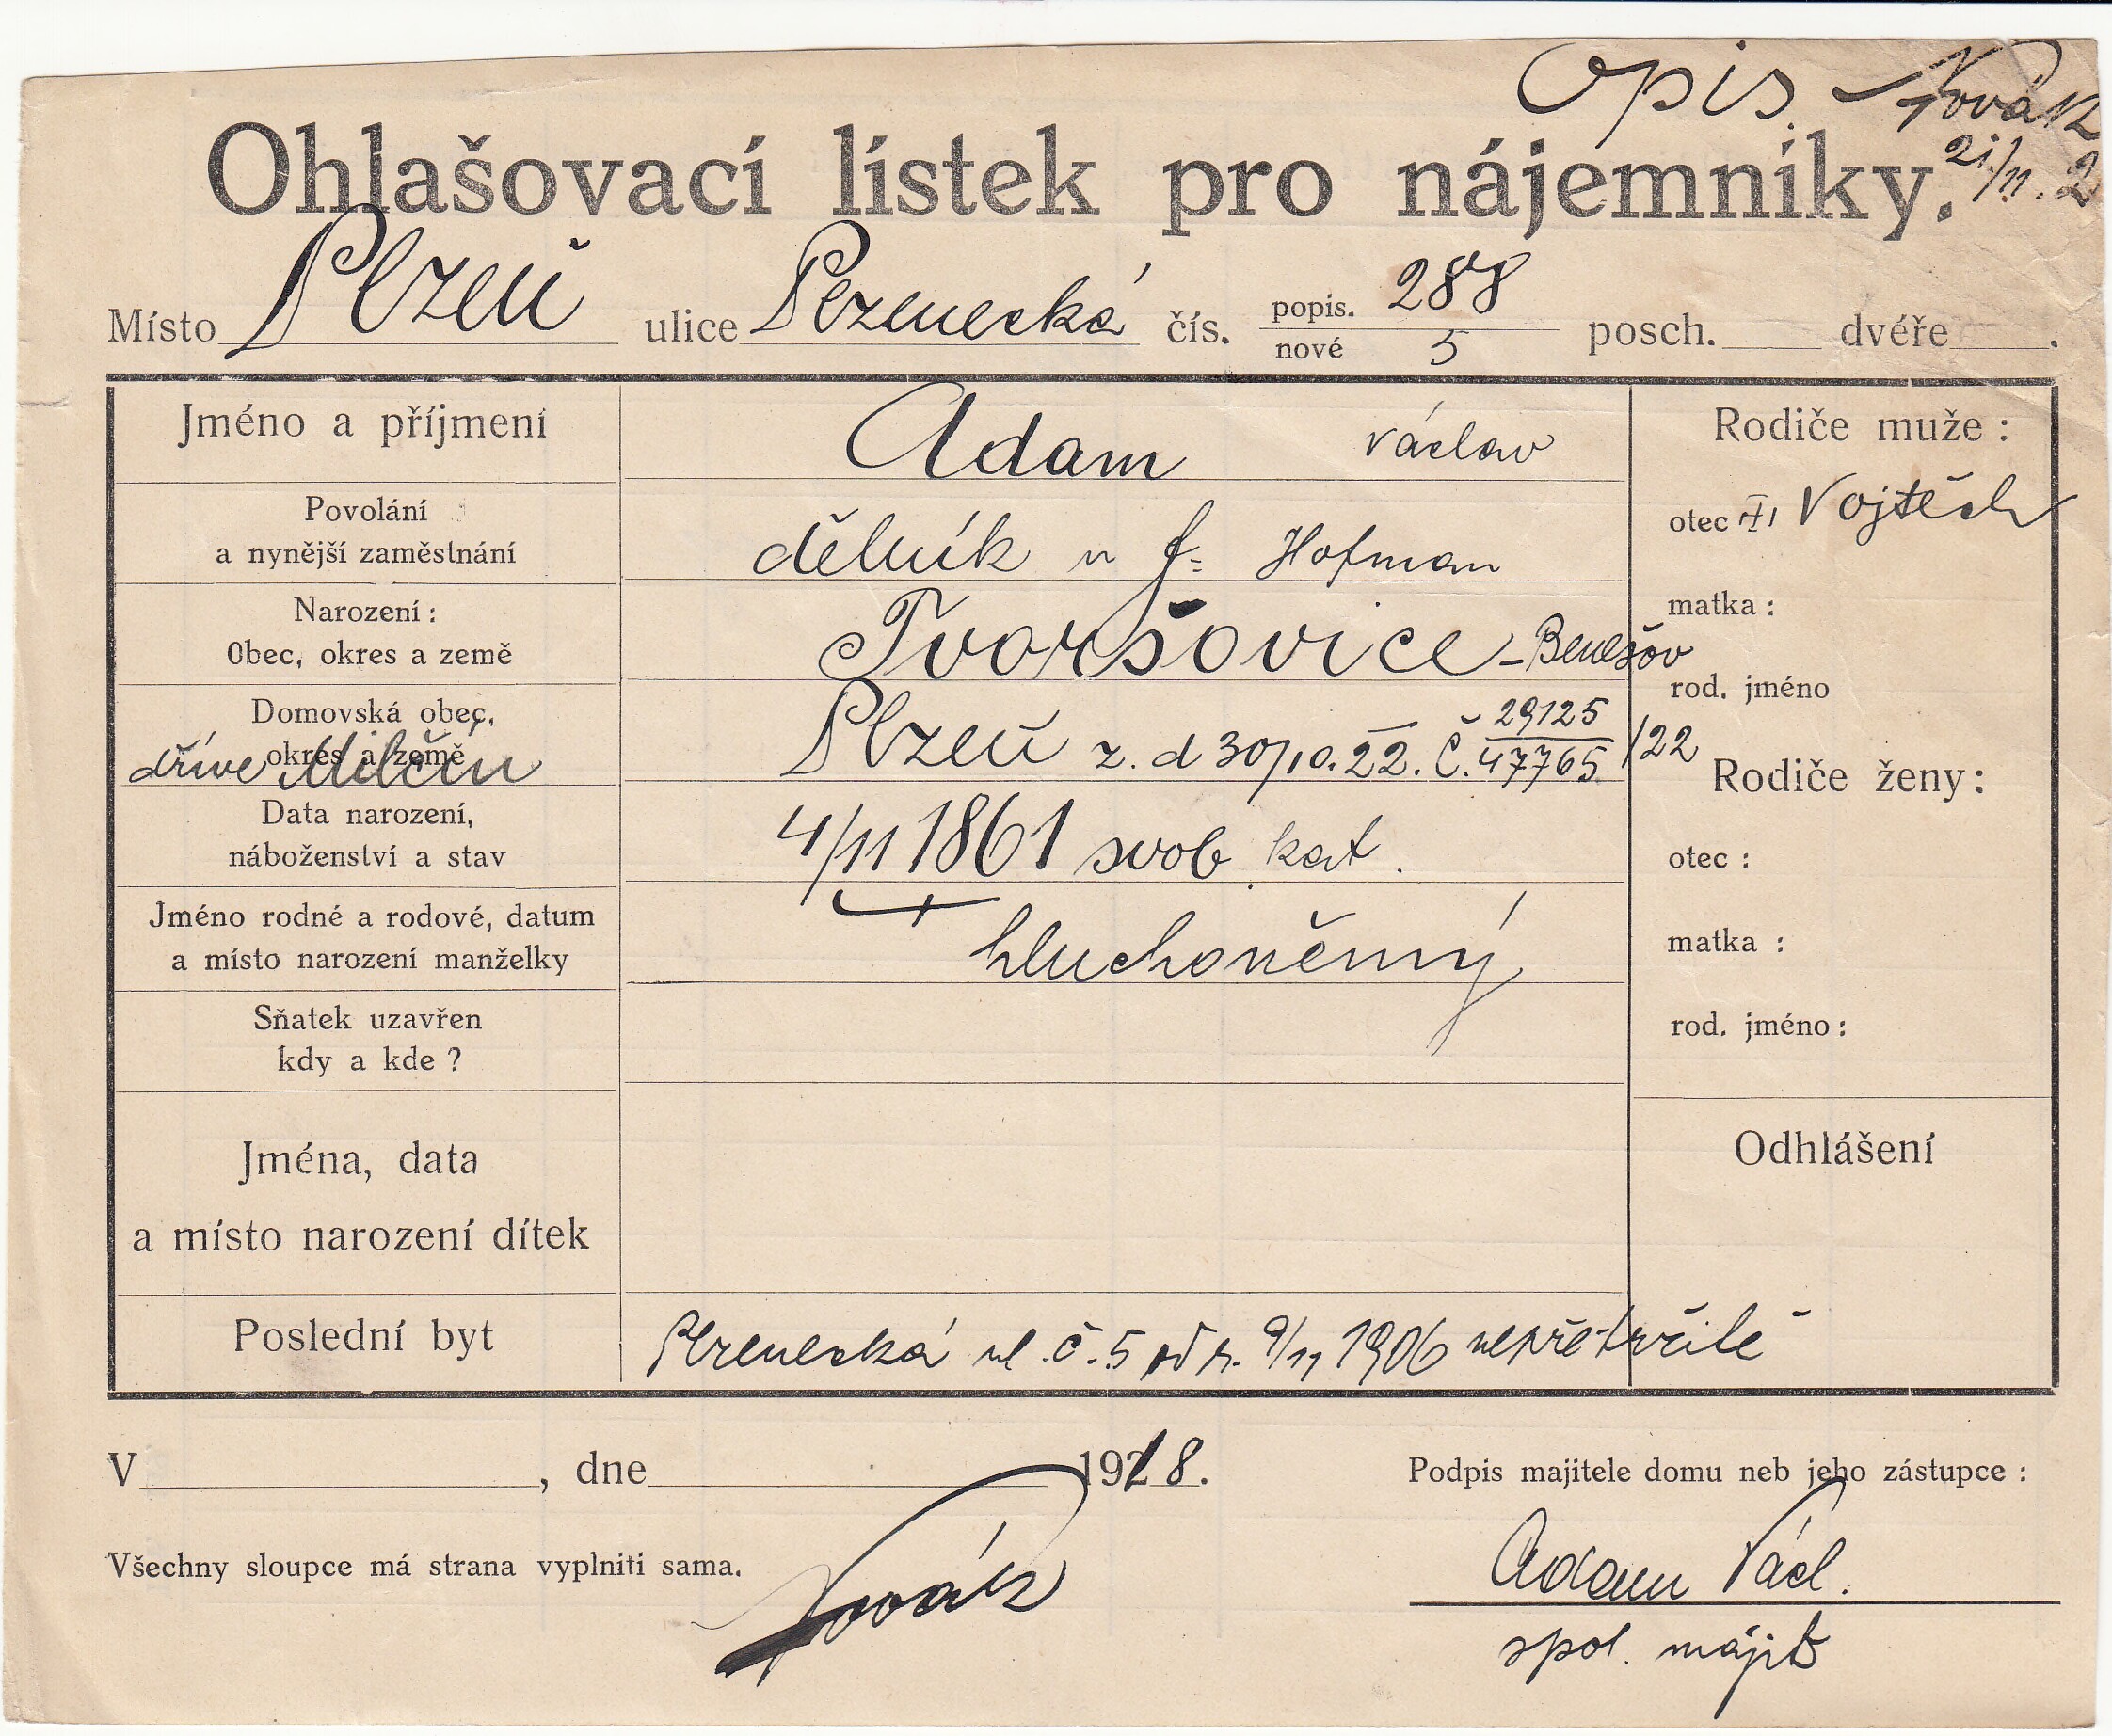 Opis Novák
21/11. 2
Ohlašovací lístek pro nájemníky.
Místo Plzeň ulice Plzenecká čís. popis. 288 posch. dvéře .
nové 5
Jméno a příjmení Adam Václav
Povolání
a nynější zaměstnání dělník u f. Hofman
Narození:
Obec, okres a země Tvoršovice - Benešov
Domovská obec,
okres a země Plzeň z. d 30/10. 22. Č. 29125
47765 /22
dříve Milčín
Data narození,
náboženství a stav 4/11 1861 svob. kat.
Jméno rodné a rodové, datum
a místo narození manželky hluchoněmý
Sňatek uzavřen
kdy a kde ?
Jména, data
a místo narození dítek
Poslední byt Plzenecká ul. č. 5 od r. 9/11 1906 nepřetržitě
Rodiče muže :
otec Vojtěch
matka :
rod. jméno
Rodiče ženy:
otec :
matka :
rod. jméno :
Odhlášení
V , dne 1928.
Podpis majitele domu neb jeho zástupce :
Všechny sloupce má strana vyplniti sama.
Novák
Adam Václ.
spol. majit